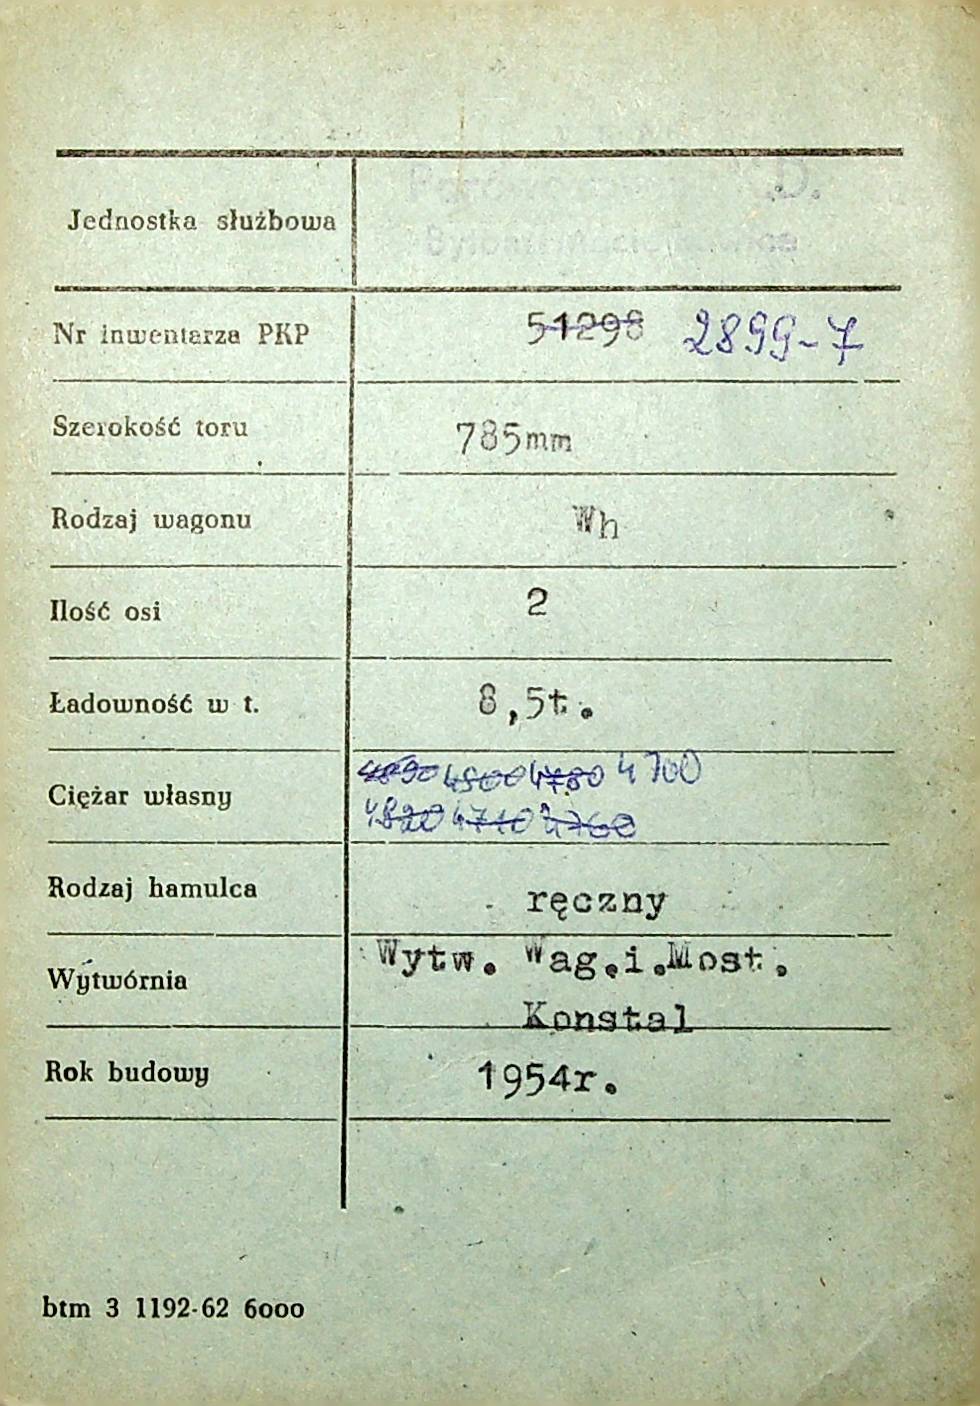 Jednostka służbowa
Nr inwentarza PKP 51298 2899-7
Szerokość toru 785mm
Rodzaj wagonu Wh
Ilość osi 2
Ładowność w t. 8,5t.
4800 4780 4700
Ciężar własny
4820 4710 4760
Rodzaj hamulca ręczny
Wytwórnia Wytw. Wag.i.Most.
Konstal
Rok budowy 1954r.
btm 3 1192-62 6000